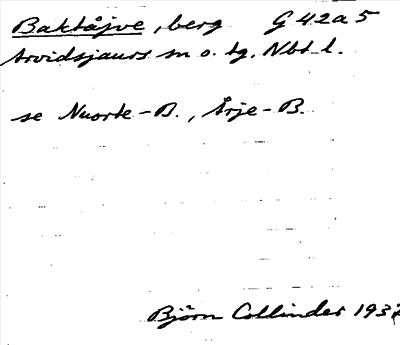 Baktåjve, berg G 42a5
Arvidsjaurs sn o. tg. Nbt l.
se Nuorte-B., Årje-B.
Björn Collinder 193